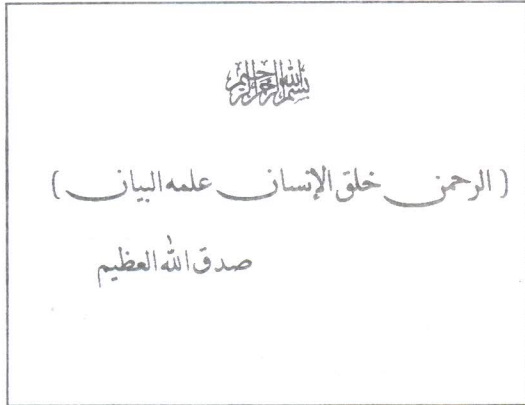 بسم الله الرحمن الرحيم
( الرحمن خلق الإنسان علمه البيان )
صدق الله العظيم